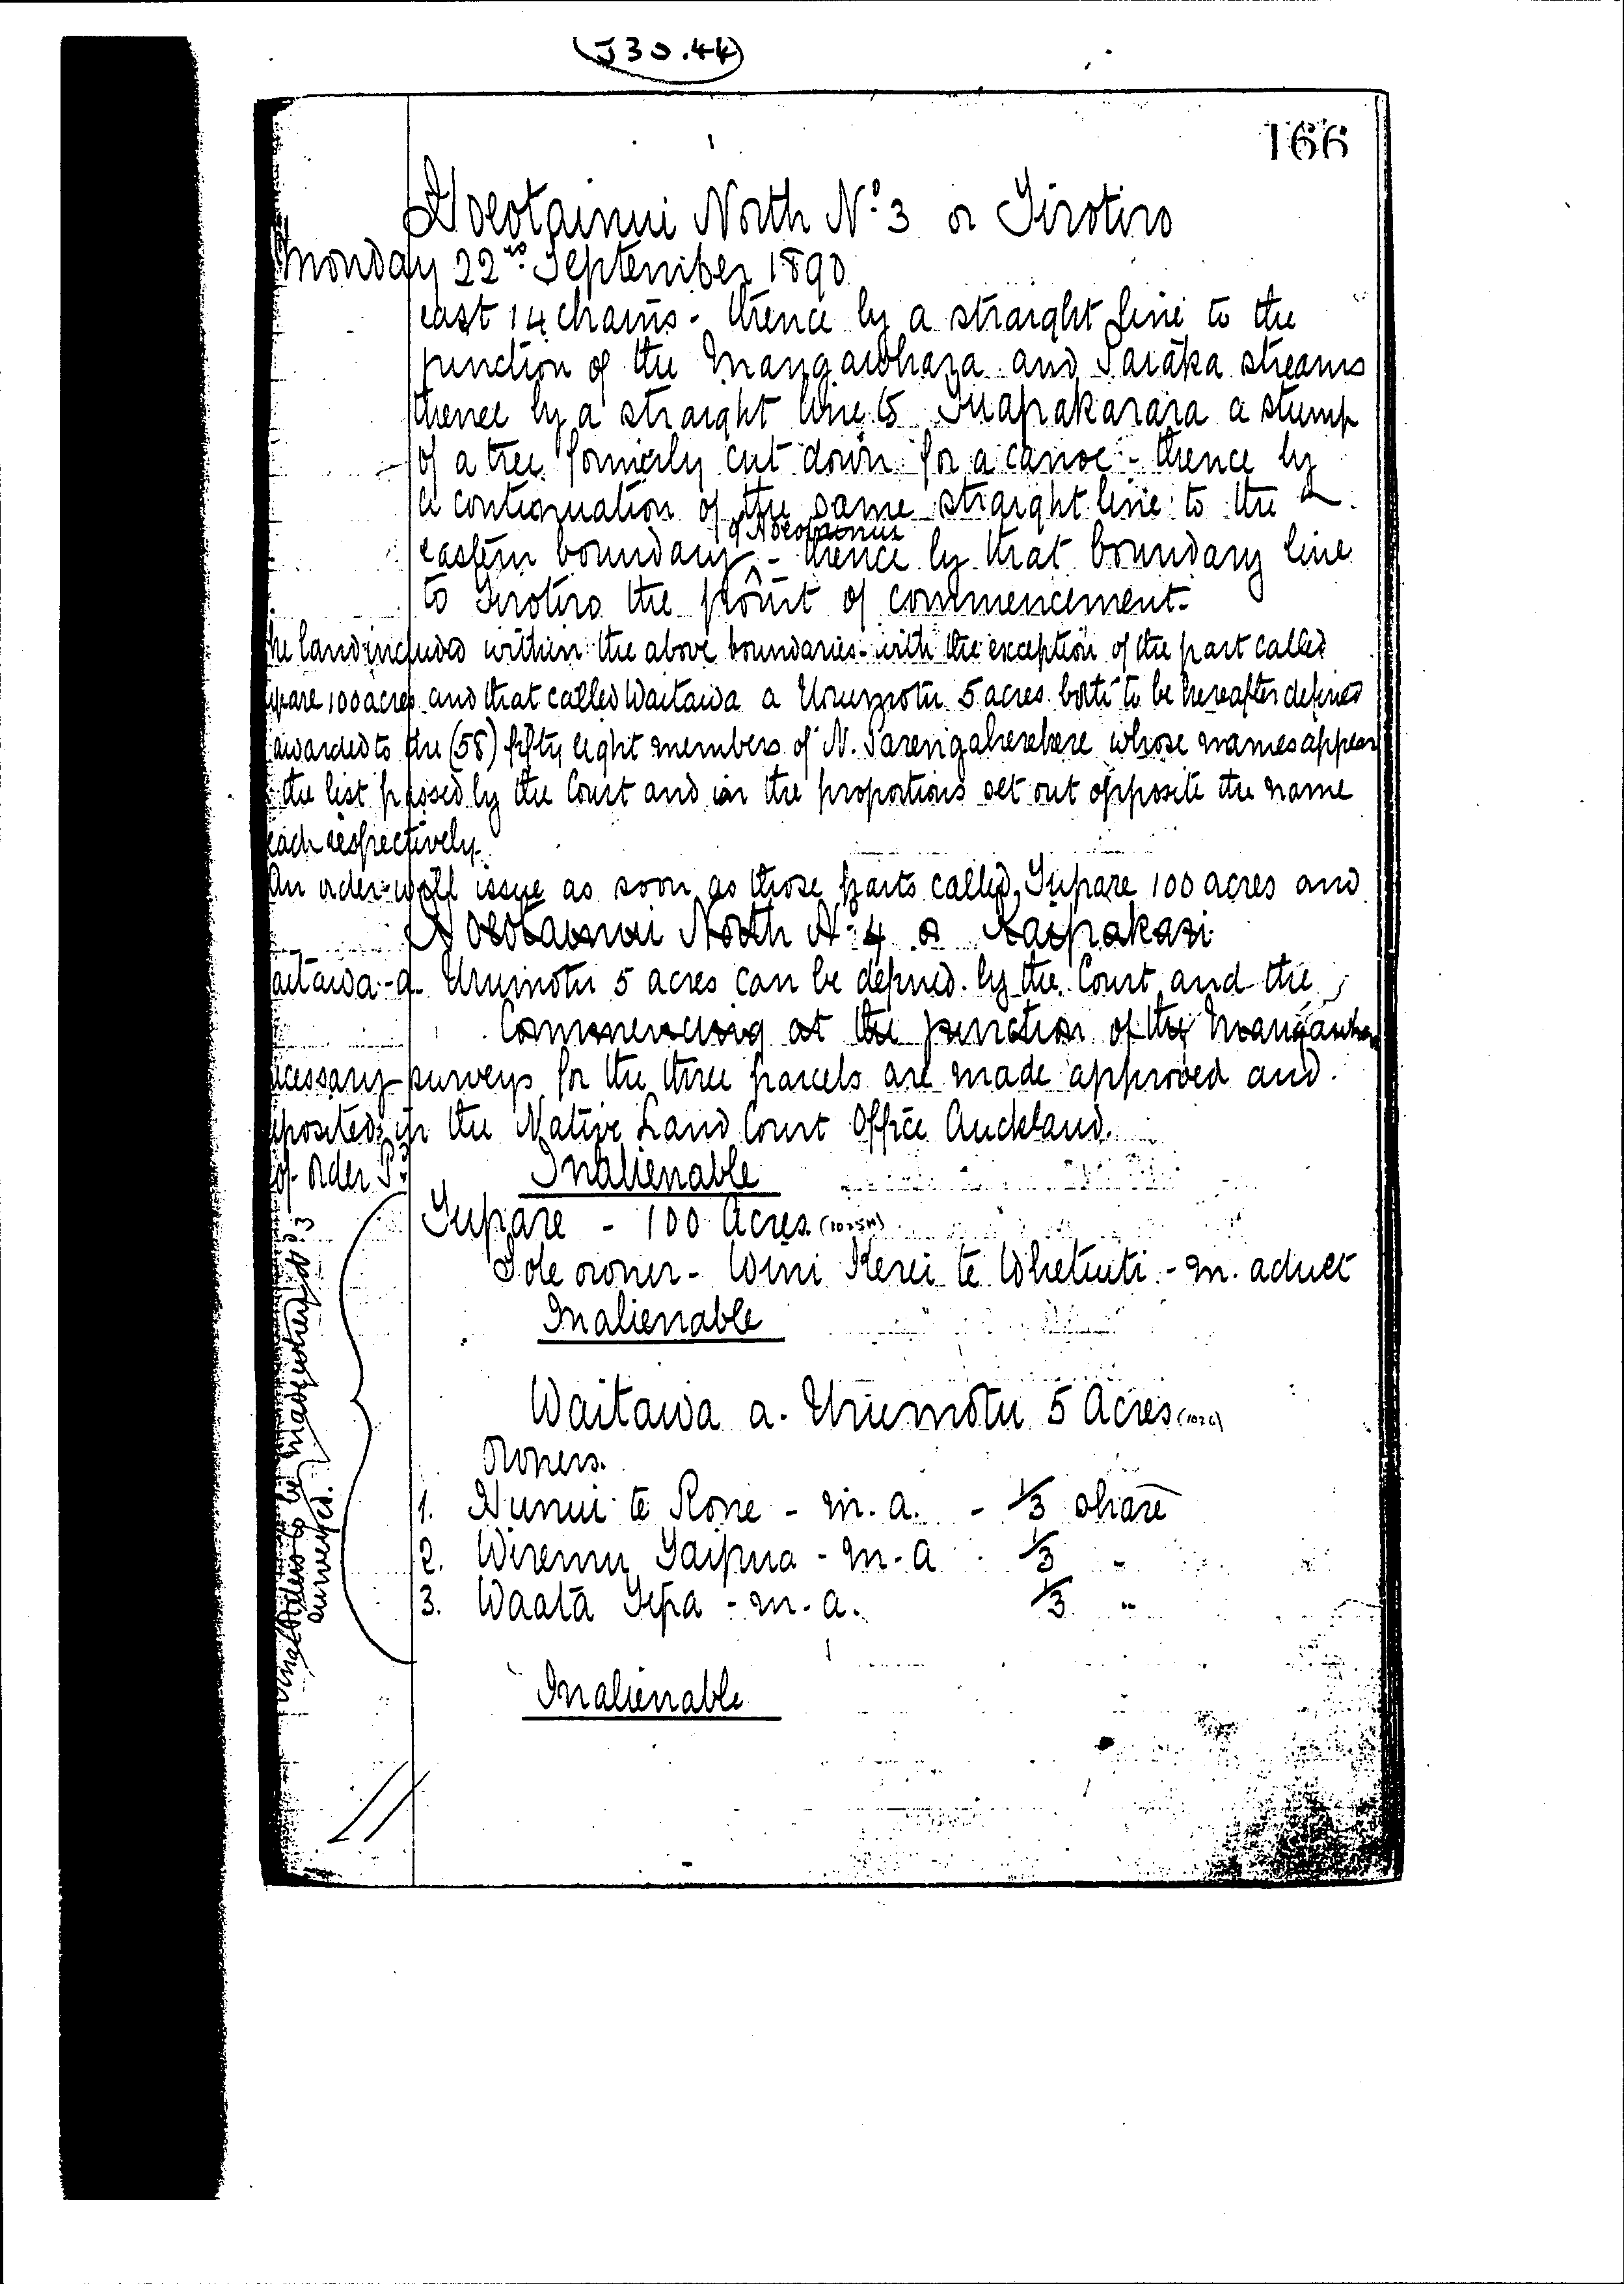 J30.44
166
Hoeotainui North No. 3 or Tirotiro
Monday 22nd September 1890
east 14 chains - thence by a straight line to the
junction of the Mangawhara and Taraka streams
thence by a straight line to Tuapakarara a stump
of a tree formerly cut down for a canoe - thence by
a continuation of the same straight line to the
of Hoeotainui
eastern boundary - thence by that boundary line
to Tirotiro the point of commencement.
he land included within the above boundaries - with the exception of the part called
upare 100 acres and that called Waitawa a Urumotu 5 acres both to be hereafter defined
awarded to the (58) fifty eight members of N. Parengaherehere whose names appear
the list passed by the Court and in the proportions set out opposite the name
each respectively.
An order will issue as soon as those parts called, Tupare 100 acres and
Hoeotainui North No. 4 or Kaipakari
aitawa - a Urumotu 5 acres can be defined by the Court and the
Commencing at the junction of the Mangawhara
cessary surveys for the three parcels are made approved and
posited in the Native Land Court Office Auckland.
of order
Inalienable
Tupare - 100 Acres.
Sole owner - Wini Kerei te Whetuiti - m. adult
Inalienable
Waitawa a. Urumotu 5 Acres
Owners.
1. Hunui te Rone - m. a. - 1/3 share
2. Wiremu Taipua - m - a 1/3 "
3. Waata Tipa - m. a. 1/3 "
Inalienable
Orders to be made when
surveyed.